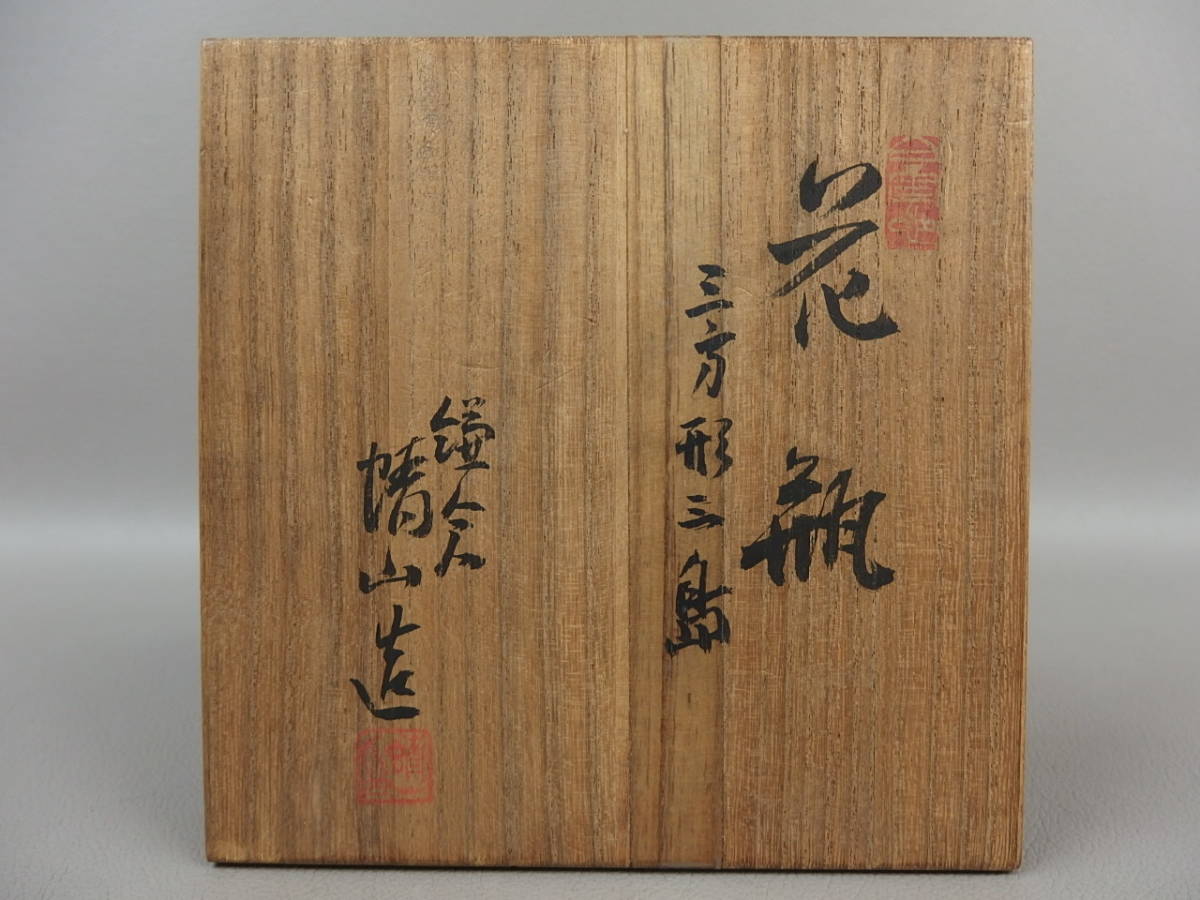 花瓶
三方形三島
鎌倉
晴山造